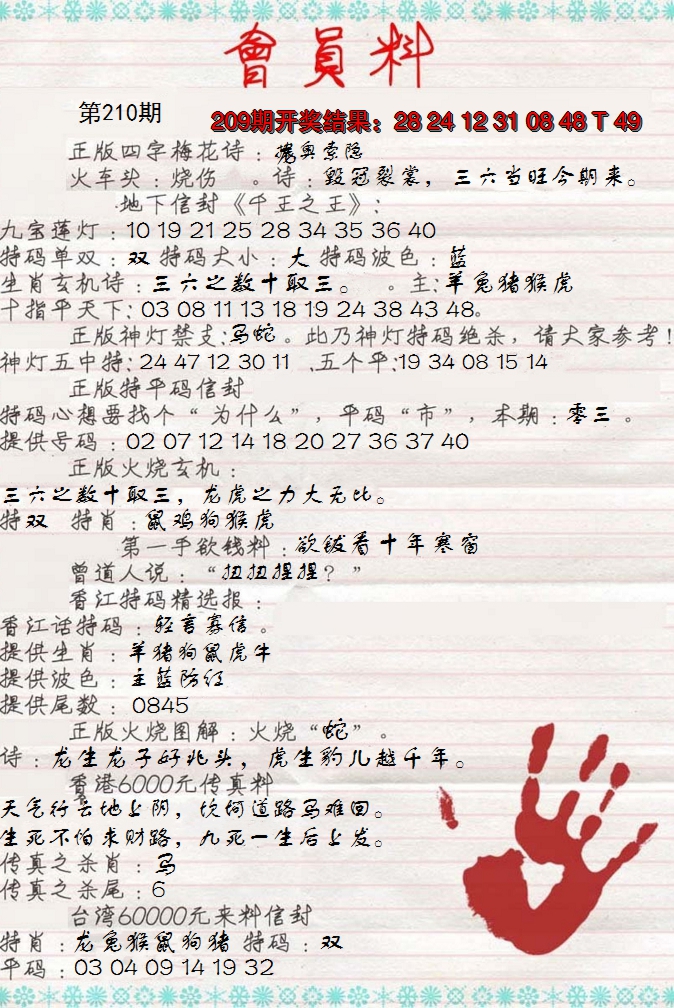 會員料
第210期
209期开奖结果：28 24 12 31 08 48 T 49
正版四字梅花诗：奥索隐
火车头：烧伤 。诗：毁冠裂裳，三六当旺今期来。
地下信封《千王之王》：
九宝莲灯：10 19 21 25 28 34 35 36 40
特码单双：双 特码大小：大 特码波色：蓝
生肖玄机诗：三六之数十取三。 。主:羊兔猪猴虎
十指平天下:03 08 11 13 18 19 24 38 43 48。
正版神灯禁支:马蛇。此乃神灯特码绝杀，请大家参考!
神灯五中特:24 47 12 30 11 .五个平:19 34 08 15 14
正版特平码信封
特码心想要找个“为什么”，平码“市”，本期：零三。
提供号码：02 07 12 14 18 20 27 36 37 40
正版火烧玄机：
三六之数十取三，龙虎之力大无比。
特双 特肖：鼠鸡狗猴虎
第一手欲钱料：欲钱看十年寒窗
曾道人说：“扭扭捏捏？”
香江特码精选报：
香江话特码：轻言寡信。
提供生肖：羊猪狗鼠虎牛
提供波色：主蓝防红
提供尾数：0845
正版火烧图解：火烧“蛇”。
诗：龙生龙子好兆头，虎生豹儿越千年。
香港6000元传真料
天气行云地上阴，坎坷道路马难回。
生死不怕求财路，九死一生后上发。
传真之杀肖：马
传真之杀尾：6
台湾60000元来料信封
特肖：龙兔猴鼠狗猪 特码：双
平码：03 04 09 14 19 32